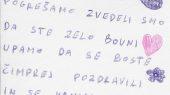 POGREŠAMO ZVEDELI SMO
DA STE ZELO BOLNI
UPAMO DA SE BOSTE
ČIMPREJ POZDRAVILI
IN SE